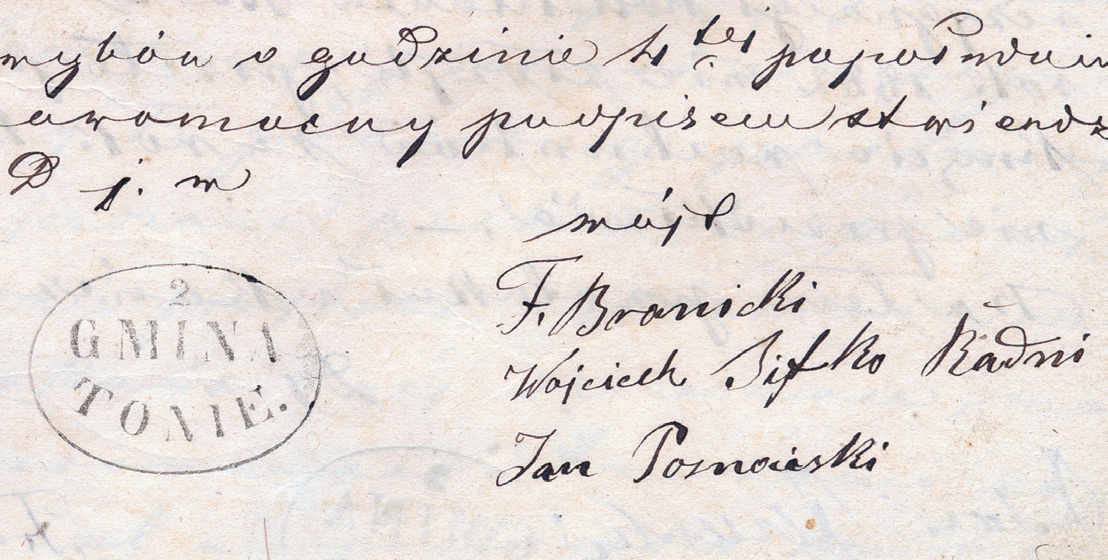 wybów o godzinie 4tej popołudniu
prawomocny podpisem stwierdz
D j. w
wójt
F. Branicki
Wojciech Sifko Radni
Jan Poznański
2
GMINA
TONIE.